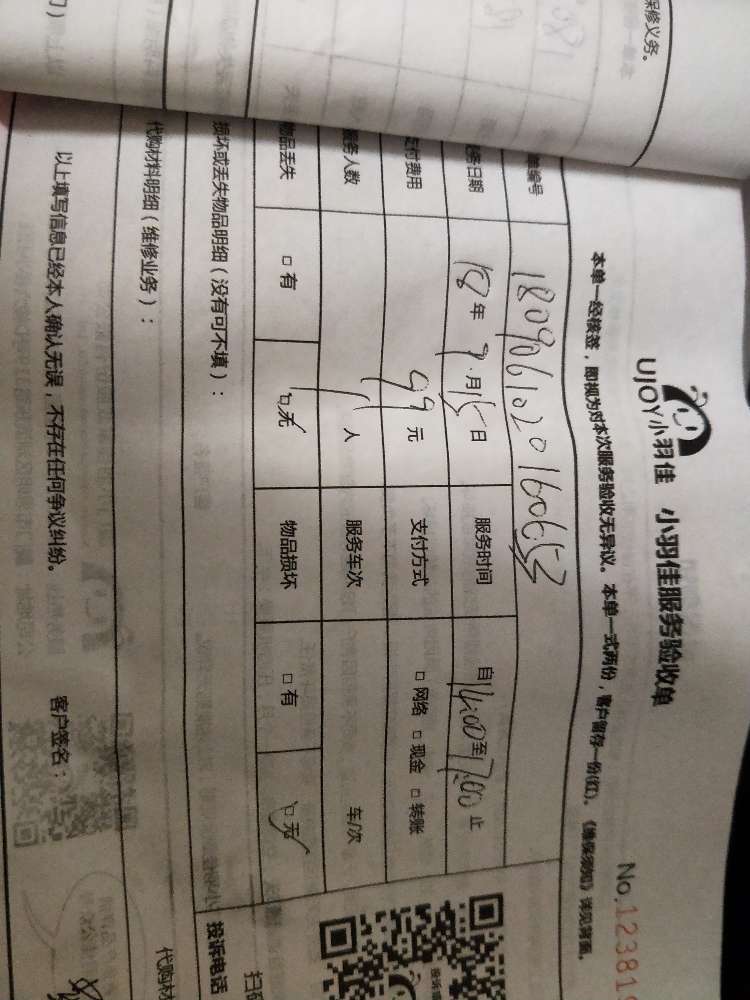 保修义务。
UJOY小羽佳 小羽佳服务验收单
No.12381
本单一经核签，即视为对本次服务验收无异议。本单一式两份，客户留存一份(红)。《维保须知》详见背面。
单编号
服务日期 18年9月15日 服务时间 自14:00至17:00止
支付费用 99元 支付方式 □网络 □现金 □转账
服务人数 1人 服务车次 车/次
物品丢失 □有 □无 物品损坏 □有 □无
损坏或丢失物品明细（没有可不填）：
投诉电话
代购材料明细（维修业务）：
代购材
以上填写信息已经本人确认无误，不存在任何争议纠纷。 客户签名：